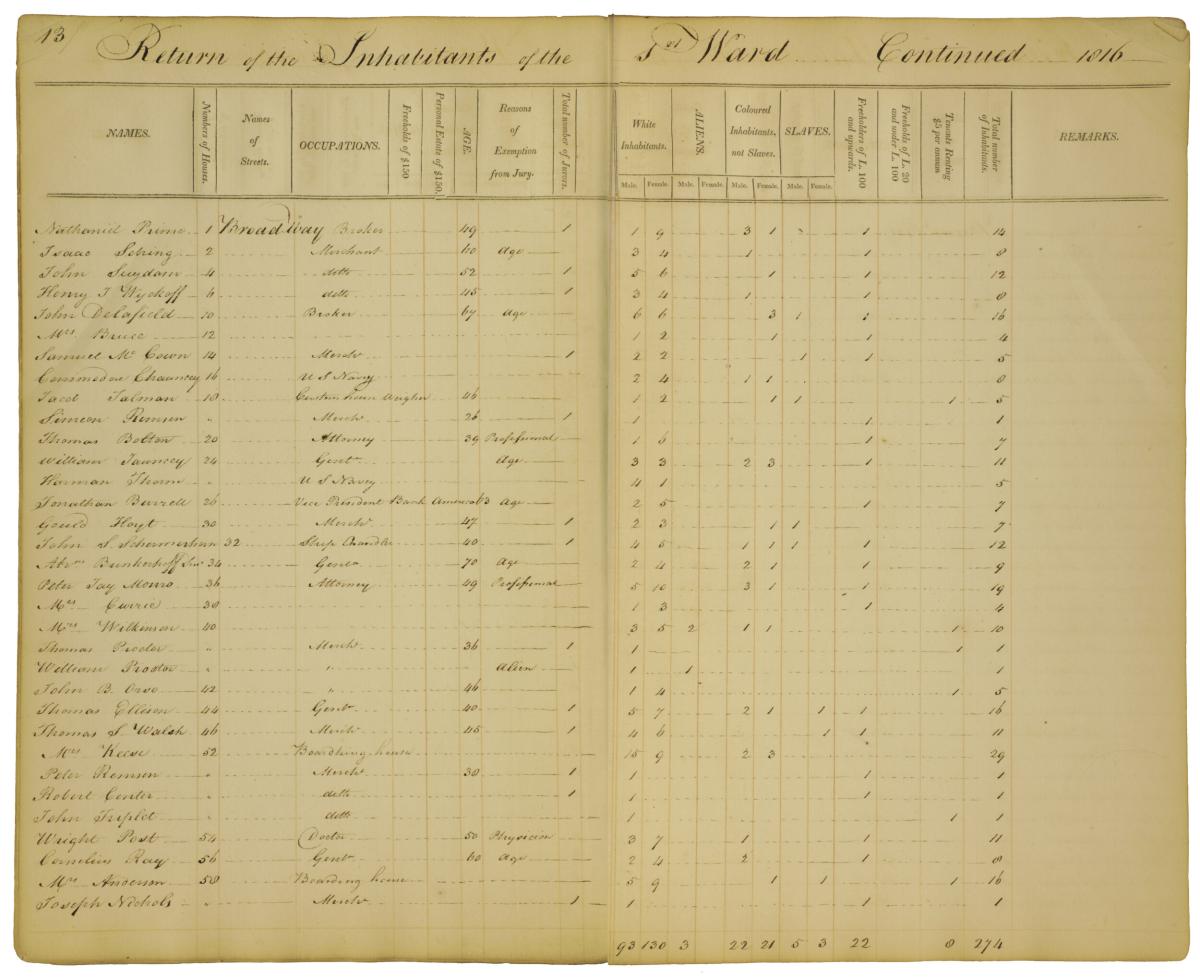 13 Return of the Inhabitants of the 1st Ward Continued 1816
NAMES. Numbers of Houses. Names of Streets. OCCUPATIONS. Freeholds of $150 Personal Estate of $150. AGE. Reasons of Exemption from Jury. Total number of Jurors. White Inhabitants. Male. Female. ALIENS. Male. Female. Coloured Inhabitants, not Slaves. Male. Female. SLAVES. Male. Female. Freeholders of L. 100 and upwards. Freeholds of L. 20 and under L. 100 Tenants Renting $5 per annum Total number of Inhabitants. REMARKS.
Nathaniel Prime 1 Broadway Broker 49 1 1 9 3 1 1 14
Isaac Sebring 2 Merchant 60 Age 3 4 1 1 8
John Suydam 4 ditto 52 1 5 6 1 1 12
Henry J Wyckoff 6 ditto 45 1 3 4 1 1 8
John Delafield 10 Broker 67 Age 6 6 3 1 1 16
Mrs Bruce 12 1 2 1 1 4
Samuel Mc Cown 14 Merch 1 2 2 1 1 5
Commodore Chauncey 16 U S Navy 2 4 1 1 8
Jacob Talman 18 Custom house weigher 46 1 2 1 1 1 5
Simeon Remsen " Merch 26 1 1 1 1
Thomas Bolton 20 Attorney 39 Professional 1 6 1 7
William Jauncey 24 Gent Age 3 3 2 3 1 11
Herman Thorn " U S Navy 4 1 5
Jonathan Burrell 26 Vice President Bank America 63 Age 2 5 1 7
Gould Hoyt 30 Merch 47 1 2 3 1 1 7
John S. Schermerhorn 32 Ship Chandler 40 1 4 5 1 1 1 1 12
Abrm Brinkerhoff Snr 34 Gent 70 Age 2 4 2 1 1 9
Peter Jay Monro 36 Attorney 49 Professional 5 10 3 1 1 19
Mrs Currie 38 1 3 1 4
Mrs Wilkinson 40 3 5 2 1 1 1 10
Thomas Proctor " Merch 36 1 1 1 1
William Proctor " " Alien 1 1 1
John B. 42 " 46 1 4 1 5
Thomas Ellison 44 Gent 40 1 5 7 2 1 1 1 16
Thomas S. Walsh 46 Merch 45 1 4 6 1 1 11
Mrs Keese 52 Boardhing house 15 9 2 3 29
Peter Remsen " Merch 30 1 1 1 1
Robert Center " ditto 1 1 1 1
John Triplet ditto 1 1 1
Wright Post 54 Doctor 50 Physician 3 7 1 1 11
Cornelius Ray 56 Gent 60 Age 2 4 2 1 8
Mrs Anderson 58 Boarding house 5 9 1 1 1 16
Joseph Nichols " Merch 1 1 1 1
93 130 3 22 21 5 3 22 8 274